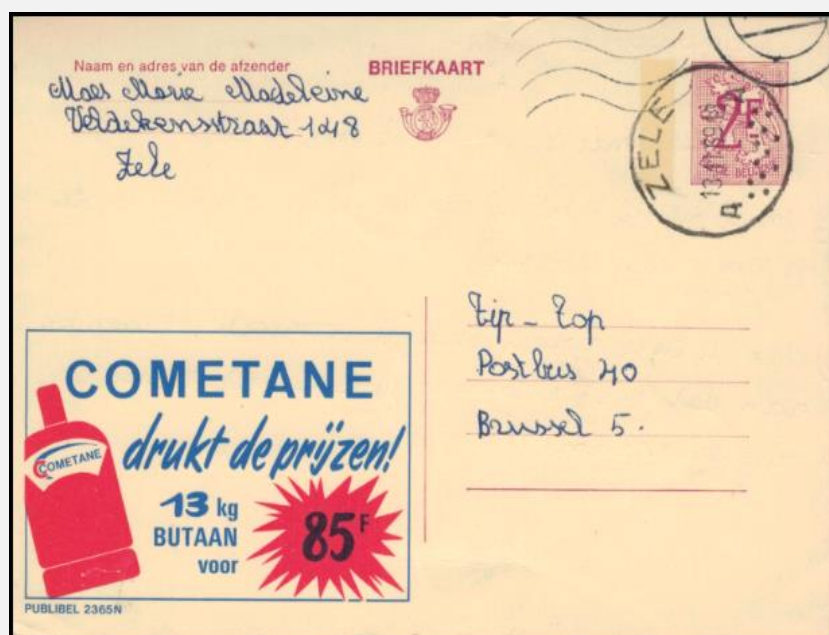 Naam en adres van de afzender
Maes Marie Madeleine
Veldekensstraat 148
Zele
BRIEFKAART
2F
ZELE
A
A
Tip-Top
Postbus 40
Brussel 5.
COMETANE
drukt de prijzen!
COMETANE
13 kg
BUTAAN
voor
85F
PUBLIBEL 2365N